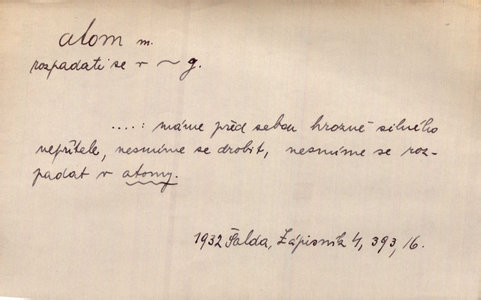 atom m.
rozpadati se v ~ g.
....: máme před sebou hrozně silného
nepřítele, nesmíme se drobit, nesmíme se roz-
padat v atomy.
1932 Šalda, Zápisník 4, 393, 16.